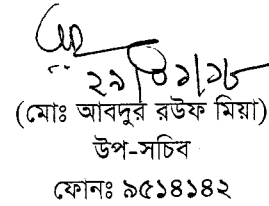 ২৯/০১/১৮
(মোঃ আবদুর রউফ মিয়া)
উপ-সচিব
ফোনঃ ৯৫১৪১৪২